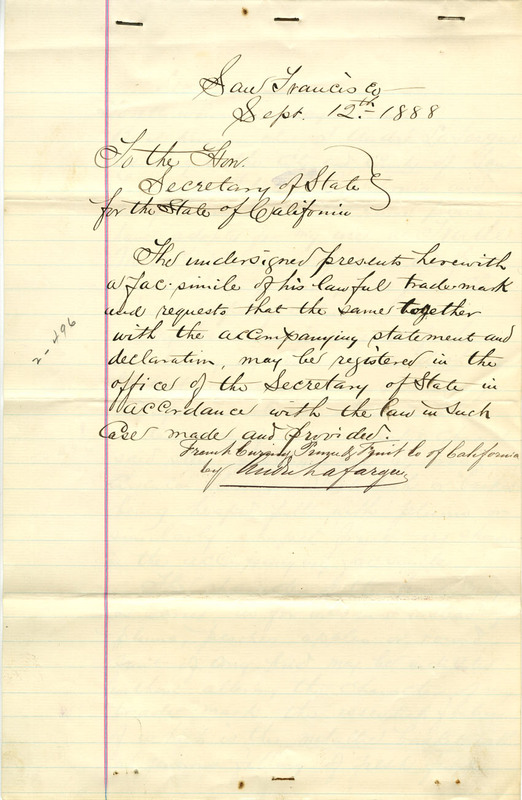 San Francisco
Sept. 12th 1888
To the Hon.
Secretary of State
for the State of California
The undersigned presents herewith
a fac-simile of his lawful trade-mark
and requests that the same together
with the accompanying statement and
declaration, may be registered in the
office of the Secretary of State in
accordance with the law in such
case made and provided.
French Curing Prune & Fruit Co of California
by Andre Lafargue
2-496